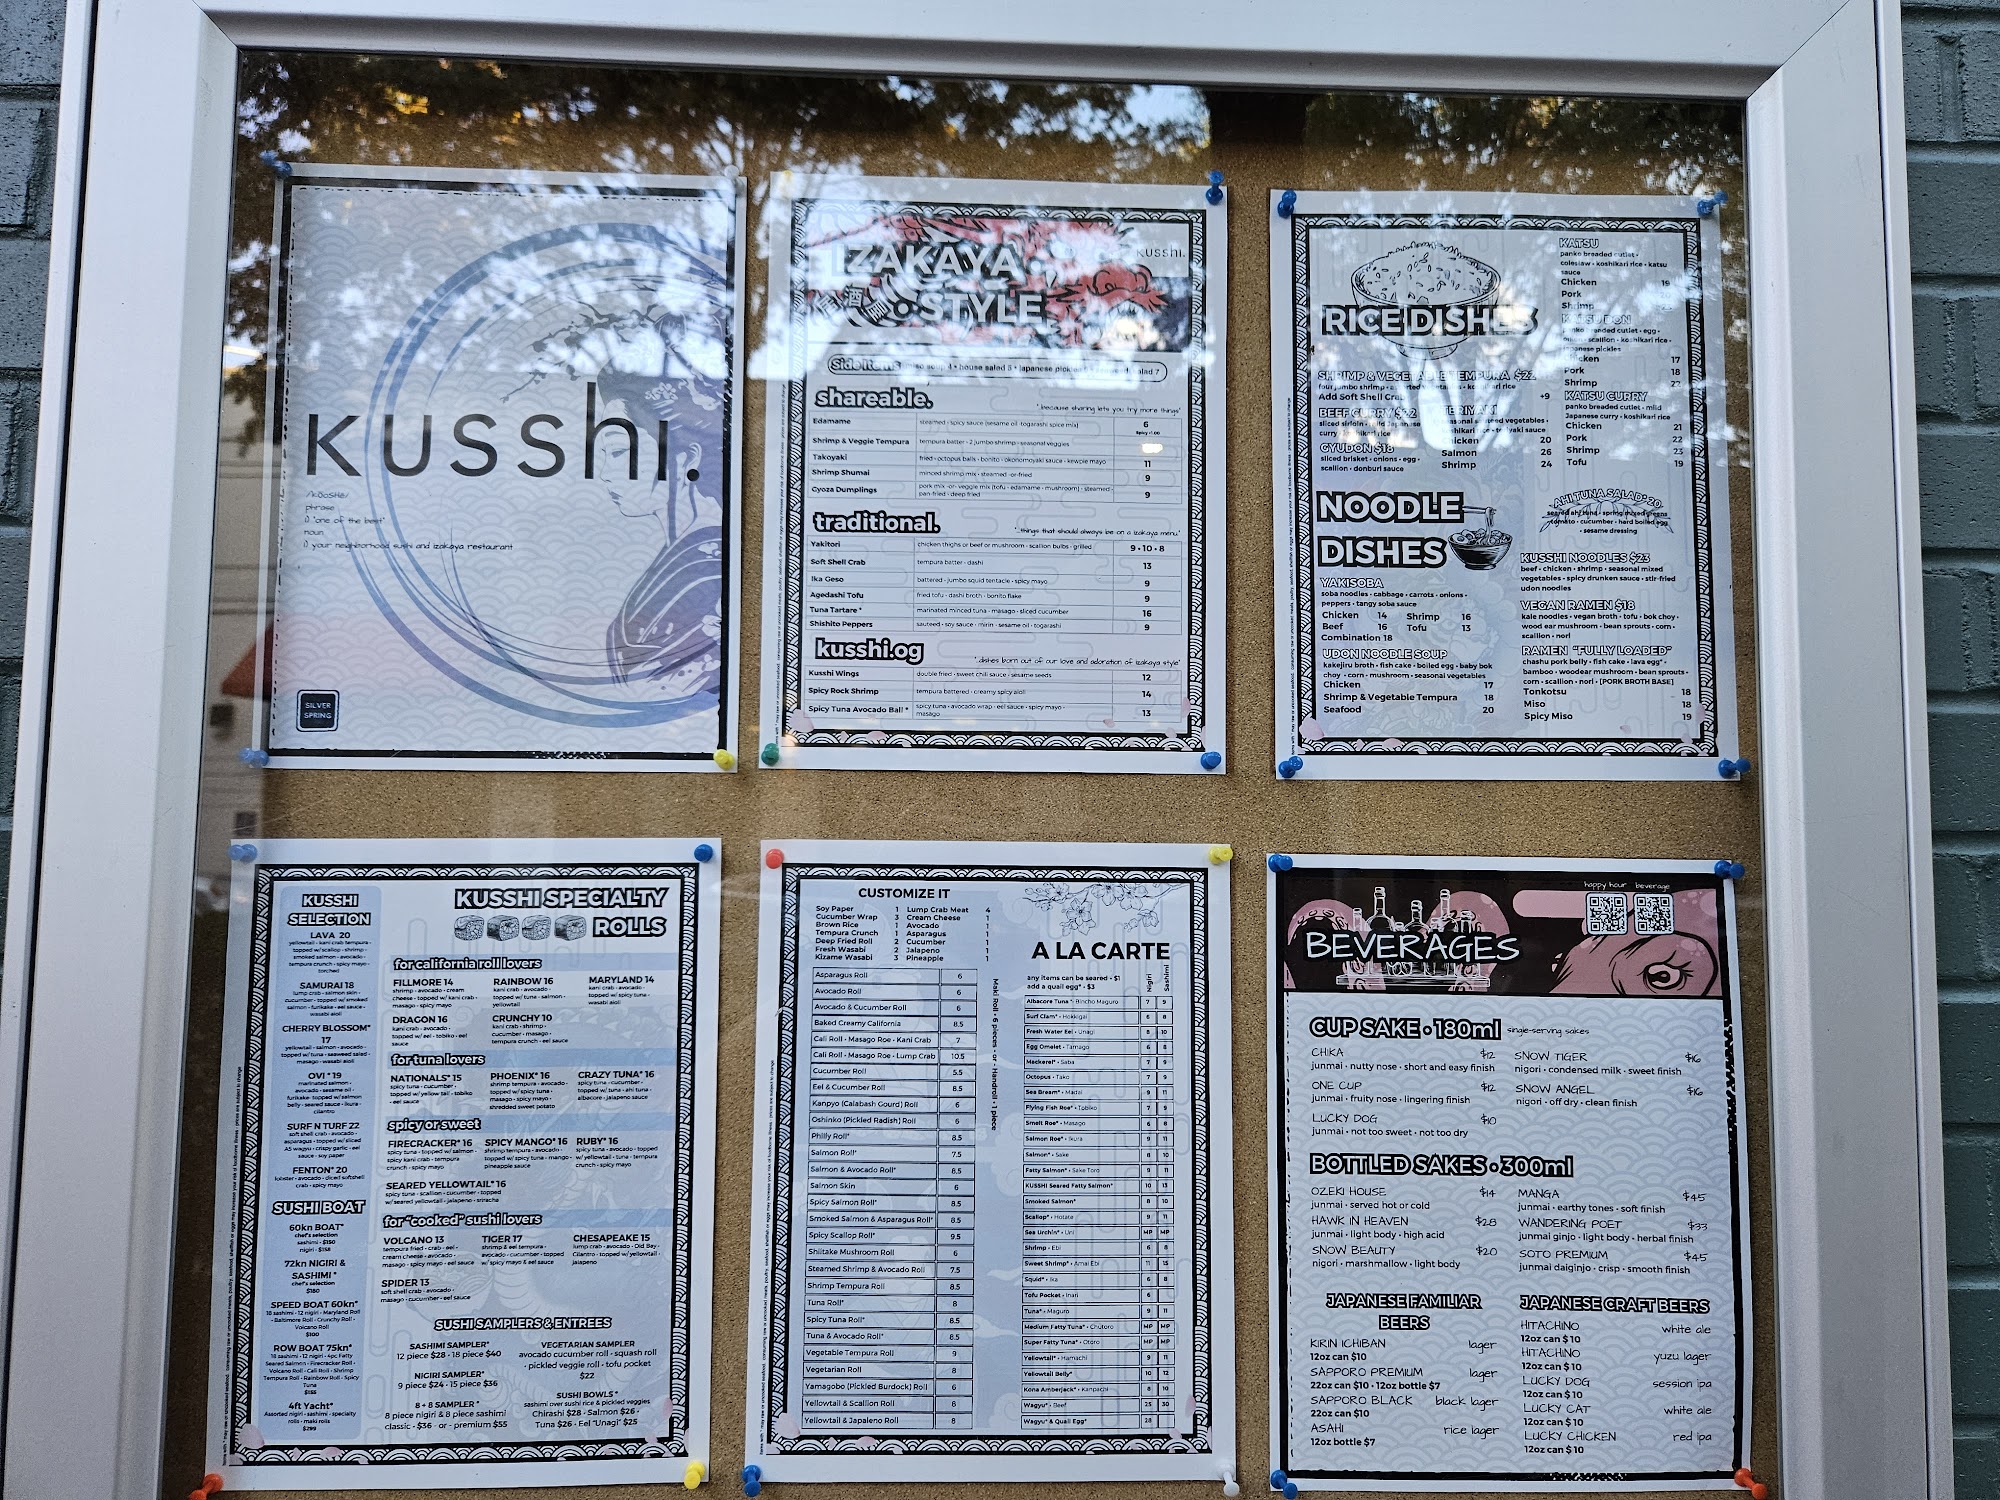 kusshi.
/kooSHē/
phrase
1) "one of the best"
noun
1) your neighborhood sushi and izakaya restaurant
SILVER
SPRING
IZAKAYA
STYLE
kusshi.
shareable.
"because sharing lets you try more things"
Edamame steamed • spicy sauce (sesame oil • togarashi spice mix) 6
Spicy +1.00
Shrimp & Veggie Tempura tempura batter • 2 jumbo shrimp • seasonal veggies
Takoyaki fried • octopus balls • bonito • okonomoyaki sauce • kewpie mayo 11
Shrimp Shumai minced shrimp mix • steamed -or- fried 9
Gyoza Dumplings pork mix -or- veggie mix (tofu • edamame • mushroom) • steamed •
pan-fried • deep fried 9
traditional.
"things that should always be on a izakaya menu"
Yakitori chicken thighs or beef or mushroom • scallion bulbs • grilled 9 • 10 • 8
Soft Shell Crab tempura batter • dashi 13
Ika Geso battered • jumbo squid tentacle • spicy mayo 9
Agedashi Tofu fried tofu • dashi broth • bonito flake 9
Tuna Tartare * marinated minced tuna • masago • sliced cucumber 16
Shishito Peppers sauteed • soy sauce • mirin • sesame oil • togarashi 9
kusshi.og
"dishes born out of our love and adoration of izakaya style"
Kusshi Wings double fried • sweet chili sauce • sesame seeds 12
Spicy Rock Shrimp tempura battered • creamy spicy aioli 14
Spicy Tuna Avocado Ball * spicy tuna • avocado wrap • eel sauce • spicy mayo •
masago 13
RICE DISHES
SHRIMP & VEGETABLE TEMPURA $22
Add Soft Shell Crab +9
BEEF CURRY $22
GYUDON $18
sliced brisket • onions • egg •
scallion • donburi sauce
TERIYAKI
Chicken 20
Salmon 26
Shrimp 24
KATSU
panko breaded cutlet •
coleslaw • koshikari rice • katsu
sauce
Chicken 19
Pork
Shrimp
KATSUDON
panko breaded cutlet • egg •
onion • scallion • koshikari rice •
japanese pickles
Chicken 17
Pork 18
Shrimp 22
KATSU CURRY
panko breaded cutlet • mild
Japanese curry • koshikari rice
Chicken 21
Pork 22
Shrimp 23
Tofu 19
AHI TUNA SALAD* 20
seared ahi tuna • spring mixed greens
tomato • cucumber • hard boiled egg
• sesame dressing
NOODLE
DISHES
YAKISOBA
soba noodles • cabbage • carrots • onions •
peppers • tangy soba sauce
Chicken 14 Shrimp 16
Beef 16 Tofu 13
Combination 18
UDON NOODLE SOUP
kakejiru broth • fish cake • boiled egg • baby bok
choy • corn • mushroom • seasonal vegetables
Chicken 17
Shrimp & Vegetable Tempura 18
Seafood 20
KUSSHI NOODLES $23
beef • chicken • shrimp • seasonal mixed
vegetables • spicy drunken sauce • stir-fried
udon noodles
VEGAN RAMEN $18
kale noodles • vegan broth • tofu • bok choy •
wood ear mushroom • bean sprouts • corn •
scallion • nori
RAMEN "FULLY LOADED"
chashu pork belly • fish cake • lava egg* •
bamboo • woodear mushroom • bean sprouts •
corn • scallion • nori • [PORK BROTH BASE]
Tonkotsu 18
Miso 18
Spicy Miso 19
KUSSHI
SELECTION
LAVA 20
yellowtail • kani crab tempura •
topped w/ scallop • shrimp •
smoked salmon • avocado •
tempura crunch • spicy mayo •
torched
SAMURAI 18
lump crab • salmon skin •
cucumber • topped w/ smoked
salmon • furikake • eel sauce •
wasabi aioli
CHERRY BLOSSOM*
17
yellowtail • salmon • avocado •
topped w/ tuna • seaweed salad •
masago • wasabi aioli
OVI * 19
marinated salmon •
avocado • sesame oil •
furikake • topped w/ salmon
belly • seared sauce • ikura •
cilantro
SURF N TURF 22
soft shell crab • avocado •
asparagus • topped w/ sliced
A5 wagyu • crispy garlic • eel
sauce • soy paper
FENTON* 20
lobster • avocado • diced softshell
crab • spicy mayo
SUSHI BOAT
60kn BOAT*
chef's selection
sashimi • $150
nigiri • $158
72kn NIGIRI &
SASHIMI *
chef's selection
$180
SPEED BOAT 60kn*
18 sashimi • 12 nigiri • Maryland Roll
• Baltimore Roll • Crunchy Roll •
Volcano Roll
$100
ROW BOAT 75kn*
18 sashimi • 12 nigiri • 4pc Fatty
Seared Salmon • Firecracker Roll •
Volcano Roll • Cali Roll • Shrimp
Tempura Roll • Rainbow Roll • Spicy
Tuna
$155
4ft Yacht*
Assorted nigiri • sashimi • specialty
rolls • maki rolls
$299
KUSSHI SPECIALTY
ROLLS
for california roll lovers
FILLMORE 14
shrimp • avocado • cream
cheese • topped w/ kani crab •
masago • spicy mayo
RAINBOW 16
kani crab • avocado •
topped w/ tuna • salmon •
yellowtail
MARYLAND 14
kani crab • avocado •
topped w/ spicy tuna •
wasabi aioli
DRAGON 16
kani crab • avocado •
topped w/ eel • tobiko • eel
sauce
CRUNCHY 10
kani crab • shrimp •
cucumber • masago •
tempura crunch • eel sauce
for tuna lovers
NATIONALS* 15
spicy tuna • cucumber •
topped w/ yellow tail • tobiko
• eel sauce
PHOENIX* 16
shrimp tempura • avocado •
topped w/ spicy tuna •
masago • spicy mayo •
shredded sweet potato
CRAZY TUNA* 16
spicy tuna • cucumber •
topped w/ tuna • ahi tuna •
albacore • jalapeno sauce
spicy or sweet
FIRECRACKER* 16
spicy tuna • topped w/ salmon •
spicy kani crab • tempura
crunch • spicy mayo
SPICY MANGO* 16
shrimp tempura • avocado •
topped w/ spicy tuna • mango •
pineapple sauce
RUBY* 16
spicy tuna • avocado • topped
w/ yellowtail • tuna • tempura
crunch • spicy mayo
SEARED YELLOWTAIL* 16
spicy tuna • scallion • cucumber • topped
w/ seared yellowtail • jalapeno • sriracha
for "cooked" sushi lovers
VOLCANO 13
tempura fried • crab • eel •
cream cheese • avocado •
masago • spicy mayo • eel sauce
TIGER 17
shrimp & eel tempura •
avocado • cucumber • topped
w/ spicy mayo & eel sauce
CHESAPEAKE 15
lump crab • avocado • Old Bay •
Cilantro • topped w/ yellowtail •
jalapeno
SPIDER 13
soft shell crab • avocado •
masago • cucumber • eel sauce
SUSHI SAMPLERS & ENTREES
SASHIMI SAMPLER*
12 piece $28 • 18 piece $40
NIGIRI SAMPLER*
9 piece $24 • 15 piece $36
8 + 8 SAMPLER *
8 piece nigiri & 8 piece sashimi
classic • $36 • or • premium $55
VEGETARIAN SAMPLER
avocado cucumber roll • squash roll
• pickled veggie roll • tofu pocket
$22
SUSHI BOWLS *
sashimi over sushi rice & pickled veggies
Chirashi $28 • Salmon $26 •
Tuna $26 • Eel "Unagi" $25
CUSTOMIZE IT
Soy Paper 1 Lump Crab Meat 4
Cucumber Wrap 3 Cream Cheese 1
Brown Rice 1 Avocado 1
Tempura Crunch 1 Asparagus 1
Deep Fried Roll 2 Cucumber 1
Fresh Wasabi 2 Jalapeno 1
Kizame Wasabi 3 Pineapple 1
Asparagus Roll 6
Avocado Roll 6
Avocado & Cucumber Roll 6
Baked Creamy California 8.5
Cali Roll • Masago Roe • Kani Crab 7
Cali Roll • Masago Roe • Lump Crab 10.5
Cucumber Roll 5.5
Eel & Cucumber Roll 8.5
Kanpyo (Calabash Gourd) Roll 6
Oshinko (Pickled Radish) Roll 6
Philly Roll* 8.5
Salmon Roll* 7.5
Salmon & Avocado Roll* 8.5
Salmon Skin 6
Spicy Salmon Roll* 8.5
Smoked Salmon & Asparagus Roll* 8.5
Spicy Scallop Roll* 9.5
Shiitake Mushroom Roll 6
Steamed Shrimp & Avocado Roll 7.5
Shrimp Tempura Roll 8.5
Tuna Roll* 8
Spicy Tuna Roll* 8.5
Tuna & Avocado Roll* 8.5
Vegetable Tempura Roll 9
Vegetarian Roll 8
Yamagobo (Pickled Burdock) Roll 6
Yellowtail & Scallion Roll 6
Yellowtail & Japaleno Roll 8
Maki Roll • 6 pieces • or • Handroll • 1 piece
A LA CARTE
any items can be seared • $1
add a quail egg* • $3
Nigiri Sashimi
Albacore Tuna * • Bincho Maguro 7 9
Surf Clam* • Hokkigai 6 8
Fresh Water Eel • Unagi 8 10
Egg Omelet • Tamago 6 8
Mackerel* • Saba 7 9
Octopus • Tako 7 9
Sea Bream* • Madai 9 11
Flying Fish Roe* • Tobiko 7 9
Smelt Roe* • Masago 6 8
Salmon Roe* • Ikura 9 11
Salmon* • Sake 8 10
Fatty Salmon* • Sake Toro 9 11
KUSSHI Seared Fatty Salmon* 10 13
Smoked Salmon* 8 10
Scallop* • Hotate 9 11
Sea Urchin* • Uni MP MP
Shrimp • Ebi 6 8
Sweet Shrimp* • Amai Ebi 11 15
Squid* • Ika 6 8
Tofu Pocket • Inari 6
Tuna* • Maguro 9 11
Medium Fatty Tuna* • Chutoro MP MP
Super Fatty Tuna* • Otoro MP MP
Yellowtail* • Hamachi 9 11
Yellowtail Belly* 10 12
Kona Amberjack* • Kanpachi 8 10
Wagyu* • Beef 25 30
Wagyu* & Quail Egg* 28
happy hour beverage
BEVERAGES
CUP SAKE • 180ml single-serving sakes
CHIKA $12
junmai • nutty nose • short and easy finish
ONE CUP $12
junmai • fruity nose • lingering finish
LUCKY DOG $10
junmai • not too sweet • not too dry
SNOW TIGER $16
nigori • condensed milk • sweet finish
SNOW ANGEL $16
nigori • off dry • clean finish
BOTTLED SAKES • 300ml
OZEKI HOUSE $14
junmai • served hot or cold
HAWK IN HEAVEN $28
junmai • light body • high acid
SNOW BEAUTY $20
nigori • marshmallow • light body
MANGA $45
junmai • earthy tones • soft finish
WANDERING POET $33
junmai ginjo • light body • herbal finish
SOTO PREMIUM $45
junmai daiginjo • crisp • smooth finish
JAPANESE FAMILIAR
BEERS
KIRIN ICHIBAN lager
12oz can $10
SAPPORO PREMIUM lager
22oz can $10 • 12oz bottle $7
SAPPORO BLACK black lager
22oz can $10
ASAHI rice lager
12oz bottle $7
JAPANESE CRAFT BEERS
HITACHINO white ale
12oz can $10
HITACHINO yuzu lager
12oz can $10
LUCKY DOG session ipa
12oz can $10
LUCKY CAT white ale
12oz can $10
LUCKY CHICKEN red ipa
12oz can $10